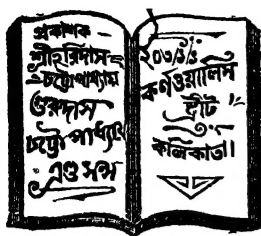 প্রকাশক-
শ্রীহরিদাস-
চট্টোপাধ্যায়
গুরুদাস
চট্টোপাধ্যায়
এণ্ড সন্স
২০৩/১/১
কর্ণওয়ালিস
ষ্ট্রীট
কলিকাতা।